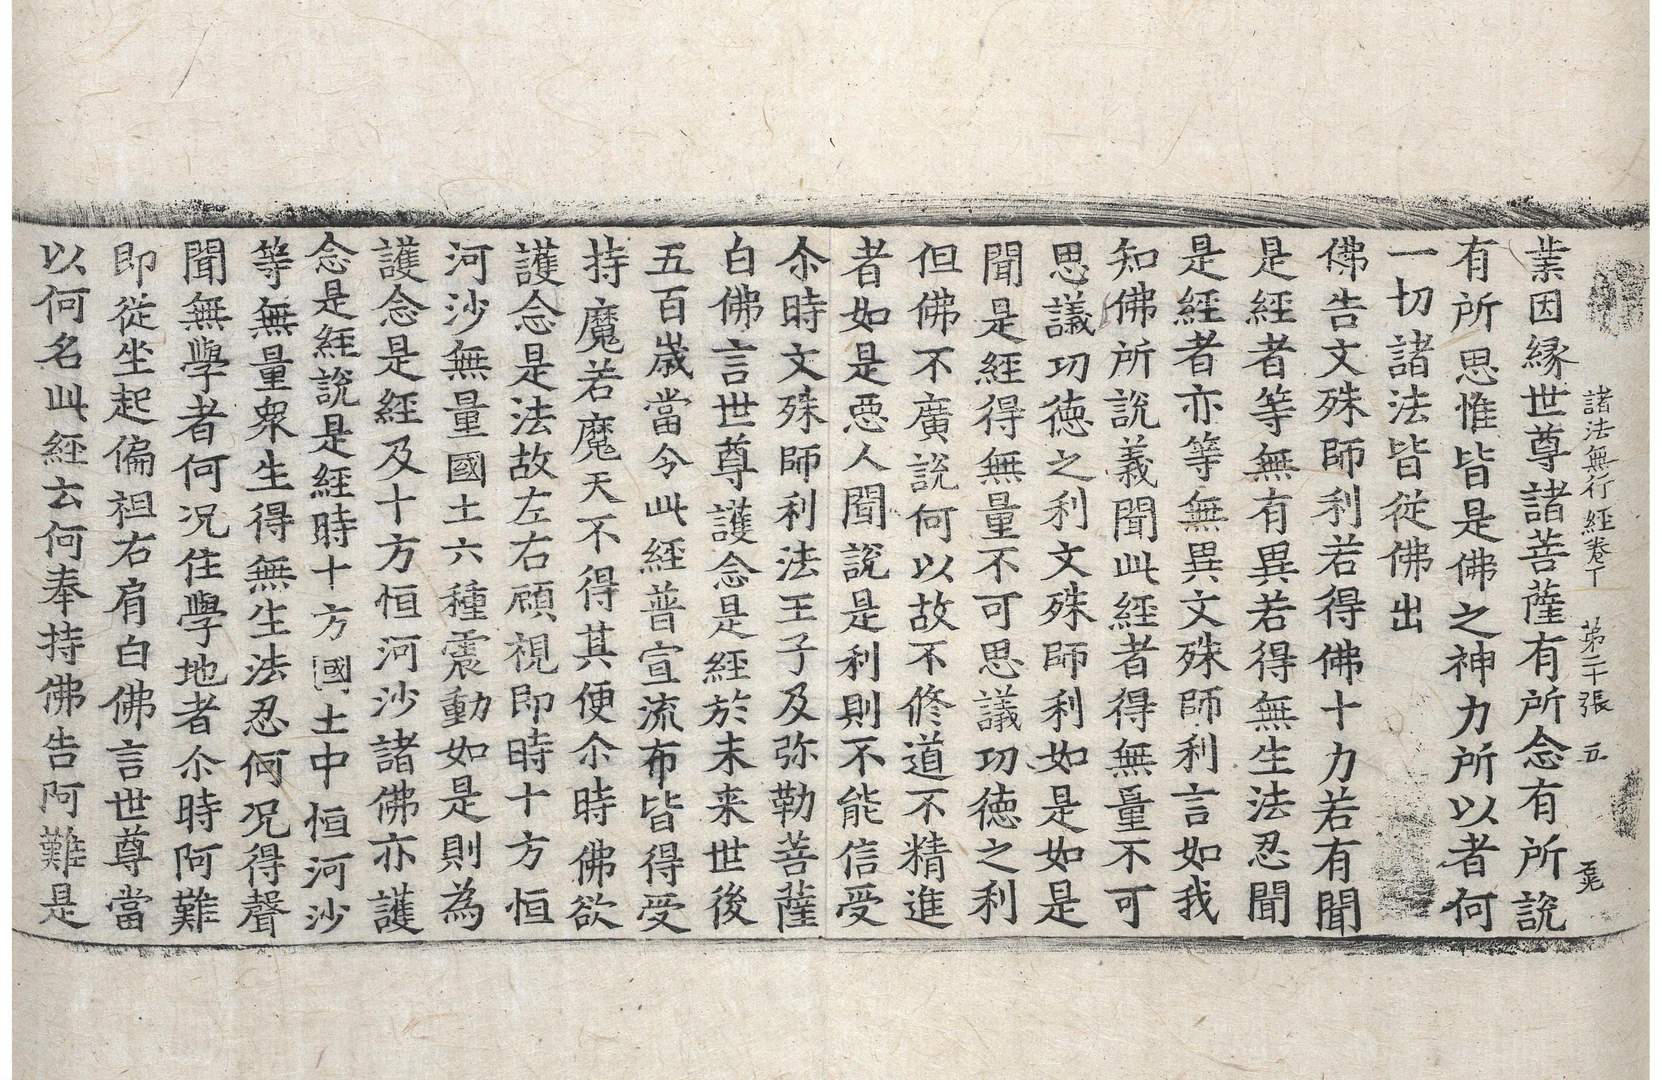 諸法無行經卷下　第二十張　五
業因緣世尊諸菩薩有所念有所說
有所思惟皆是佛之神力所以者何
一切諸法皆從佛出
佛告文殊師利若得佛十力若有聞
是經者等無有異若得無生法忍聞
是經者亦等無異文殊師利言如我
知佛所說義聞此經者得無量不可
思議功德之利文殊師利如是如是
聞是經得無量不可思議功德之利
但佛不廣說何以故不修道不精進
者如是惡人聞說是利則不能信受
尒時文殊師利法王子及弥勒菩薩
白佛言世尊護念是經於未来世後
五百歲當令此經普宣流布皆得受
持魔若魔天不得其便尒時佛欲
護念是法故左右顧視即時十方恒
河沙無量國土六種震動如是則為
護念是經及十方恒河沙諸佛亦護
念是經說是經時十方國土中恒河沙
等無量衆生得無生法忍何况得聲
聞無學者何况住學地者尒時阿難
即從坐起偏袒右肩白佛言世尊當
以何名此經云何奉持佛告阿難是